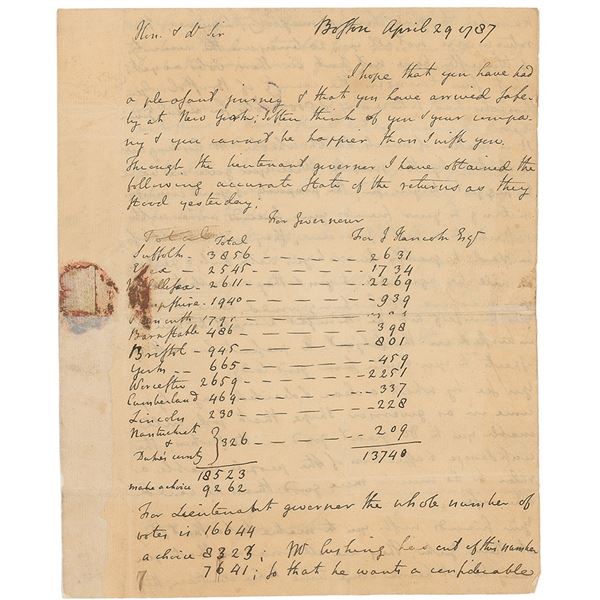 Hon. & Dr Sir Boston April 29 1787
I hope that you have had
a pleasant journey & that you have arrived safe-
ly at New York; I often think of you & your compa-
ny & you cannot be happier than I wish you.
Through the lieutenant governer I have obtained the
following accurate State of the returns as they
stood yesterday;
For Governeur
Total Total For J Hancock Esqr
Suffolk - 3856 - - - - - 2631
Essex - 2545 - - - - - 1734
2611 - - - - - 2269
1940 - - - - - 939
Barnstable 486 - - - - - 398
Bristol - 945 - - - - - 801
York - 665 - - - - - 459
Worcester 2659 - - - - - 2251
Cumberland 469 - - - - - 337
Lincoln 230 - - - - - 228
Nantucket
& } 326 - - - - - 209
Duke's county
18523 13740
make a choice 9262
For Lieutenant governer the whole number of
votes is 16644
a choice 8323; Mr Cushing has out of this number
7641; so that he wants a considerable
7